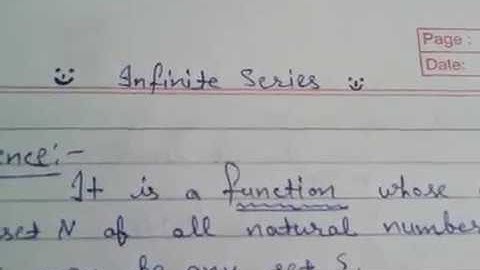 Page :
Date:
Infinite Series
ence:-
It is a function whose
set N of all natural number
be any set S.